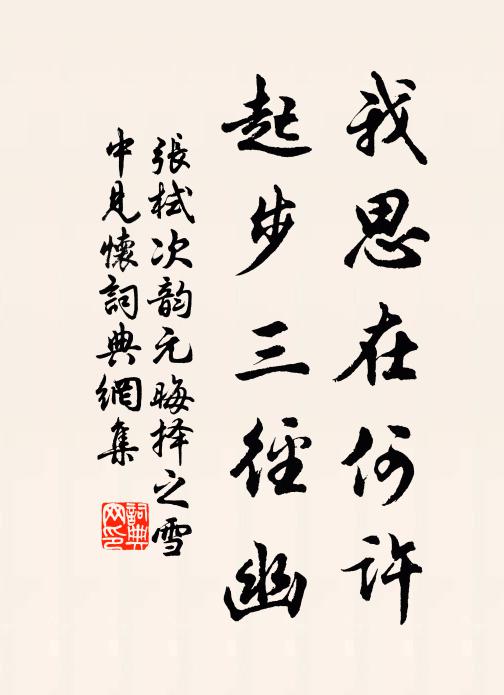 我思在何許
起步三徑幽
張栻次韵元晦择之雪
中見懷詞典網集
詞典
网印